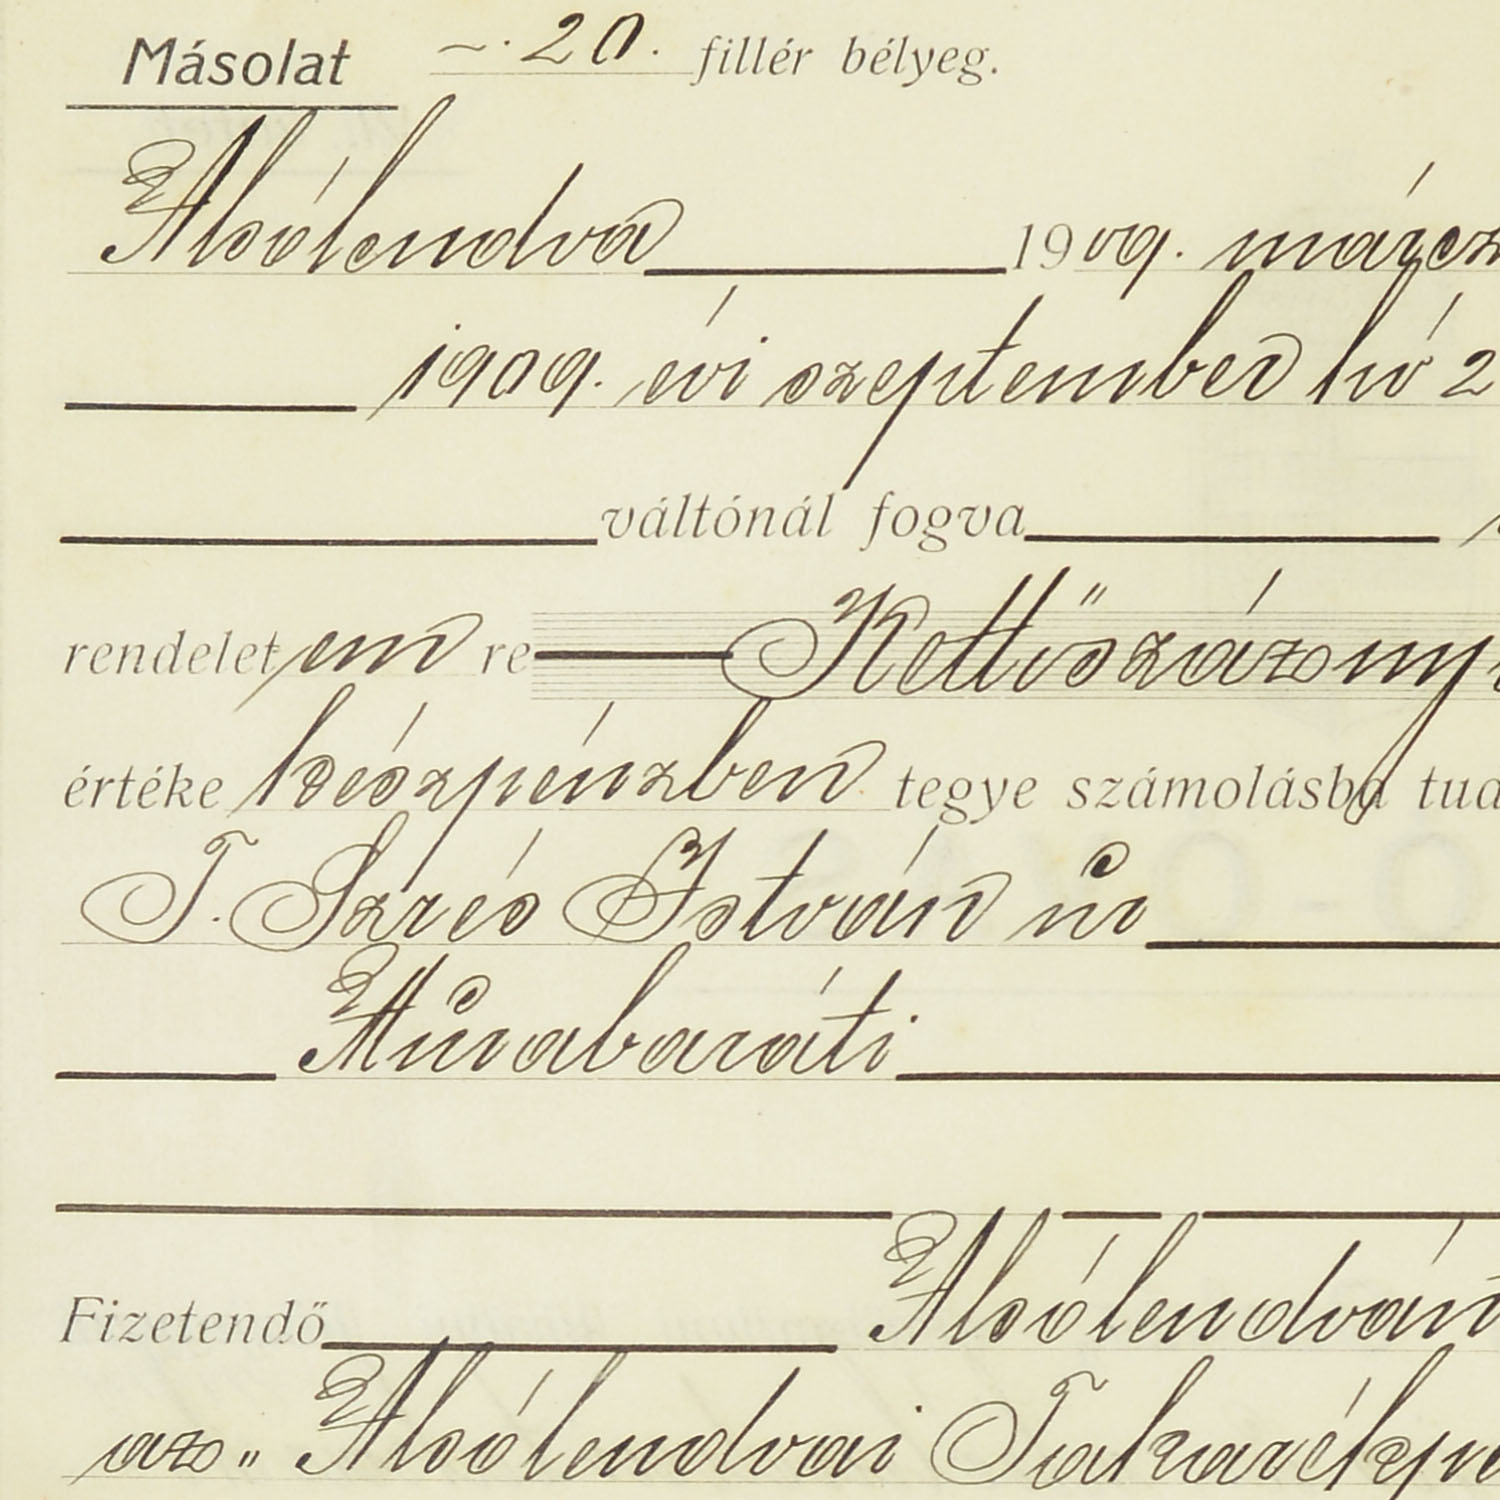 Másolat —. 20. fillér bélyeg.
Alsólendva 1909. márcz
1909. évi szeptember hó 2
váltónál fogva
rendeletem re Kettőszázny
értéke készpénzben tegye számolásba tud
T. Szrés István úr
Murabaráti
Fizetendő Alsólendván
az „ Alsólendvai Takarékp